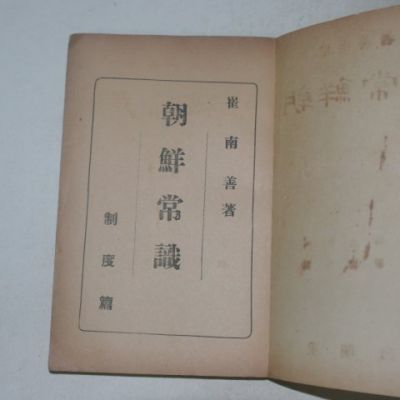 崔南善著
朝鮮常識
制度篇